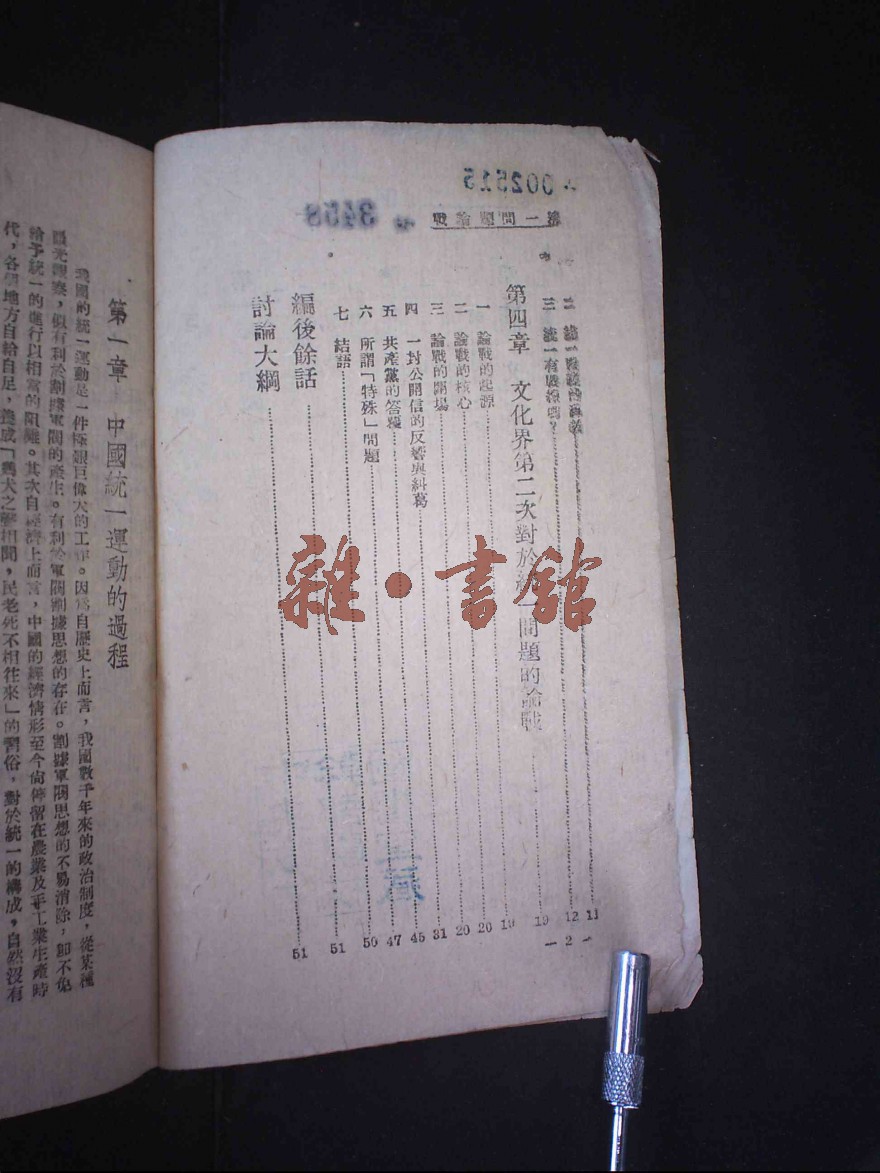 002515
3458
統一問題論戰
三 統一有長線嗎？ 12
第四章 文化界第二次對於統一問題的論戰 19
一 論戰的起源 19
二 論戰的核心 20
三 論戰的開場 31
四 一封公開信的反響與糾葛 45
五 共產黨的答覆 47
六 所謂「特殊」問題 50
七 結語 51
編後餘話 51
討論大綱
— 2 —
雜·書館
第一章 中國統一運動的過程
我國的統一運動是一件極艱巨偉大的工作。因為自歷史上而言，我國數千年來的政治制度，從某種
眼光觀察，似有利於割據軍閥的產生。有利於軍閥割據思想的存在。割據軍閥思想的不易消除，卽不免
給予統一的進行以相當的阻難。其次自經濟上而言，中國的經濟情形至今尙停留在農業及手工業生產時
代，各地方自給自足，養成「鷄犬之聲相聞，民老死不相往來」的習俗，對於統一的構成，自然沒有